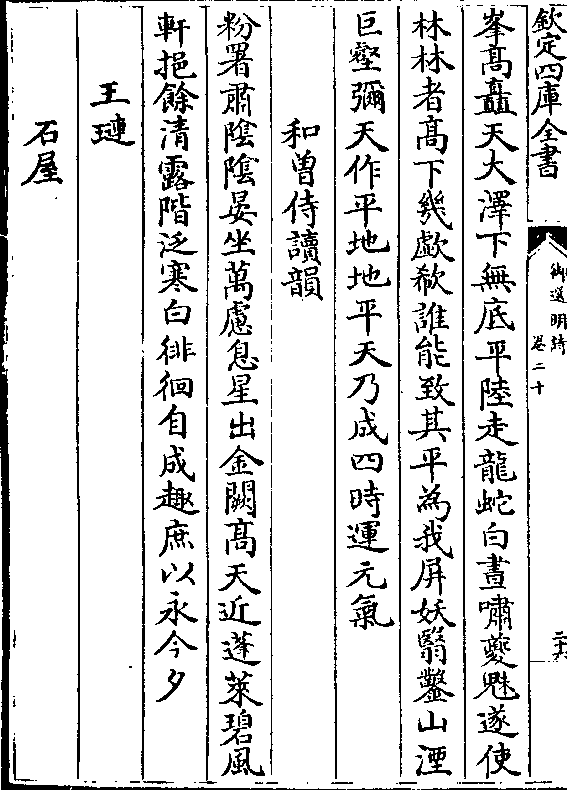 欽定四庫全書
御選明詩
卷二十
二六
峯髙矗天大澤下無底平陸走龍蛇白晝嘯夔魁遂使
林林者髙下幾歔欷誰能致其平為我屏妖翳鑿山湮
巨壑彌天作平地地平天乃成四時運元氣
和曽侍讀韻
粉署肅陰陰晏坐萬慮息星出金闕髙天近蓬萊碧風
軒挹餘清露階泛寒白徘徊自成趣庶以永今夕
王璉
石屋